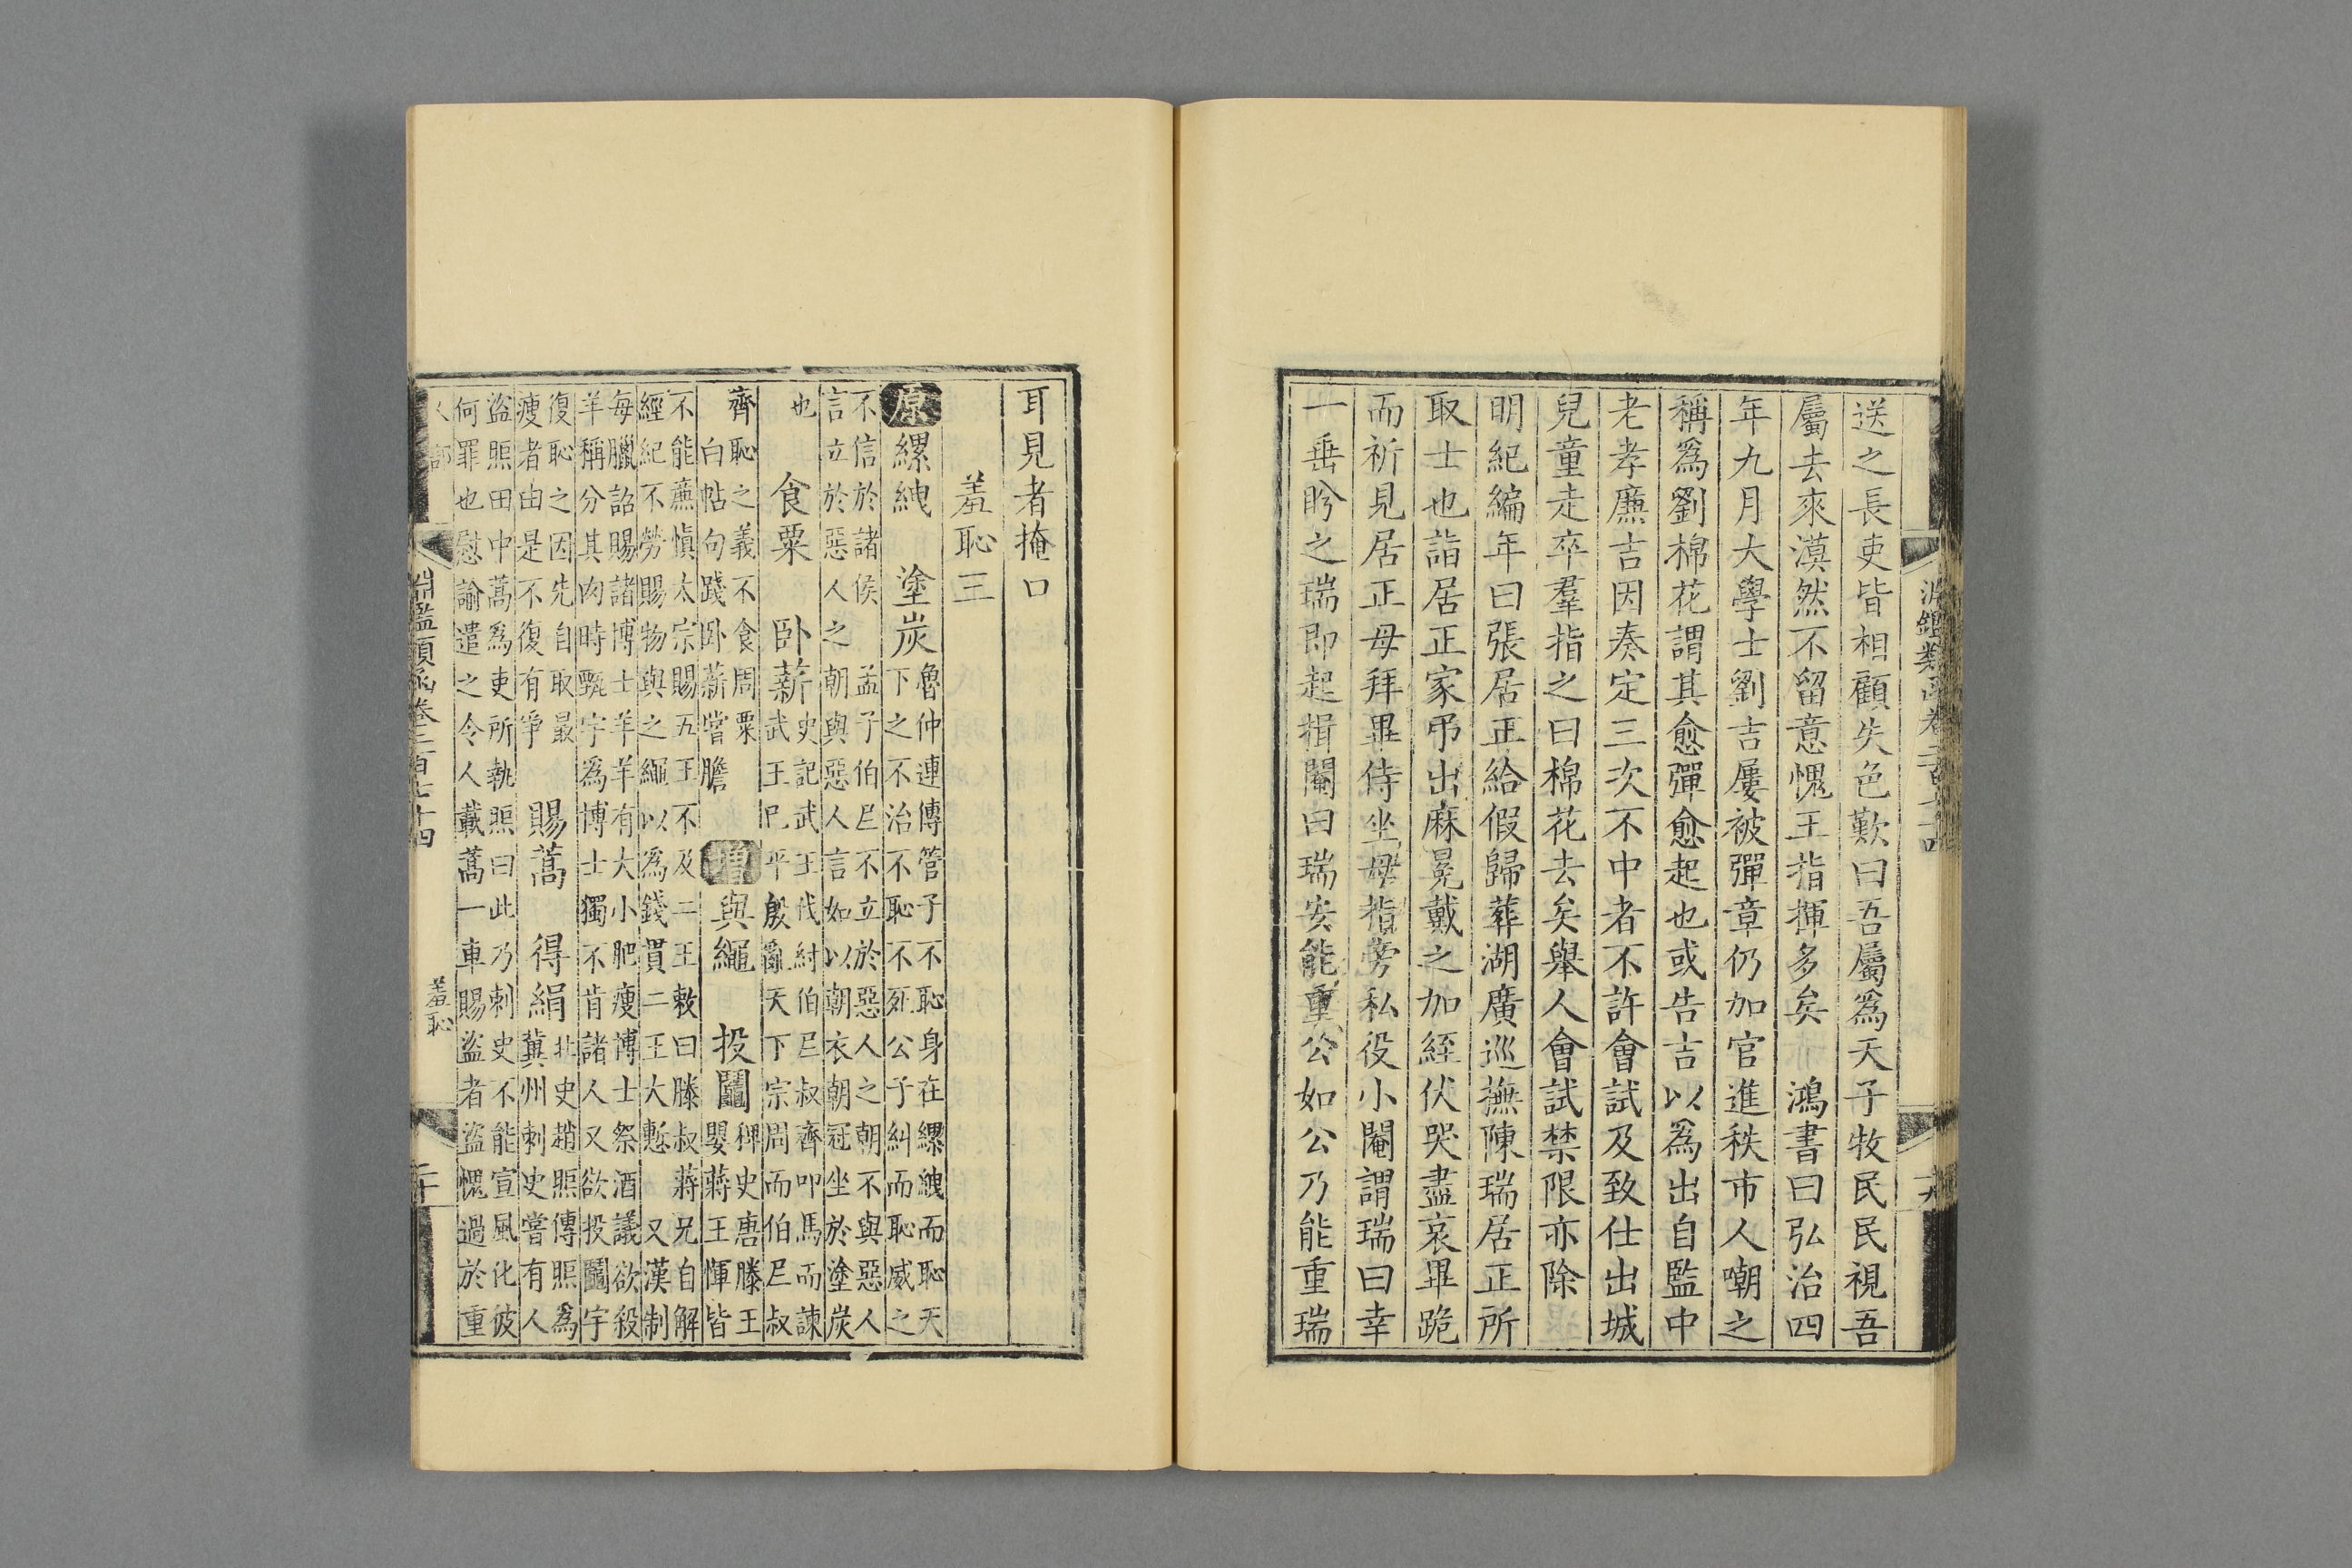 淵鑑類函卷二百七十四
送之長吏皆相顧失色歎曰吾屬爲天子牧民民視吾
屬去來漠然不留意愧王指揮多矣　鴻書曰弘治四
年九月大學士劉吉屢被彈章仍加官進秩市人嘲之
稱爲劉棉花謂其愈彈愈起也或告吉以爲出自監中
老孝廉吉因奏定三次不中者不許會試及致仕出城
兒童走卒羣指之曰棉花去矣舉人會試禁限亦除
明紀編年曰張居正給假歸葬湖廣巡撫陳瑞居正所
取士也詣居正家弔出麻冕戴之加絰伏哭盡哀畢跪
而祈見居正母拜畢侍坐母指旁私役小閹謂瑞曰幸
一垂盻之瑞即起揖閹曰瑞安能重公如公乃能重瑞
耳見者掩口
羞恥三
原縲絏　塗炭魯仲連傳管子不恥身在縲絏而恥天
下之不治不恥不死公子糾而恥威之
不信於諸侯　孟子伯夷不立於惡人之朝不與惡人
言立於惡人之朝與惡人言如以朝衣朝冠坐於塗炭
也　食粟　卧薪史記武王伐紂伯夷叔齊叩馬而諫
武王已平殷亂天下宗周而伯夷叔
齊恥之義不食周粟
白帖句踐卧薪嘗膽　增與繩　投鬮稗史唐滕王
嬰蔣王惲皆
不能廉愼太宗賜五王不及二王敕曰滕叔蔣兄自解
經紀不勞賜物與之繩以爲錢貫二王大慙　又漢制
每臘詔賜諸博士羊羊有大小肥瘦博士祭酒議欲殺
羊稱分其肉時甄宇爲博士獨不肯諸人又欲投鬮宇
復恥之因先自取最
瘦者由是不復有爭　賜蒿　得絹北史趙煚傳煚爲
冀州刺史嘗有人
盜煚田中蒿爲吏所執煚曰此乃刺史不能宣風化彼
何罪也慰諭遣之令人載蒿一車賜盜者盜愧過於重
淵鑑類函卷二百七十四
羞恥
二十